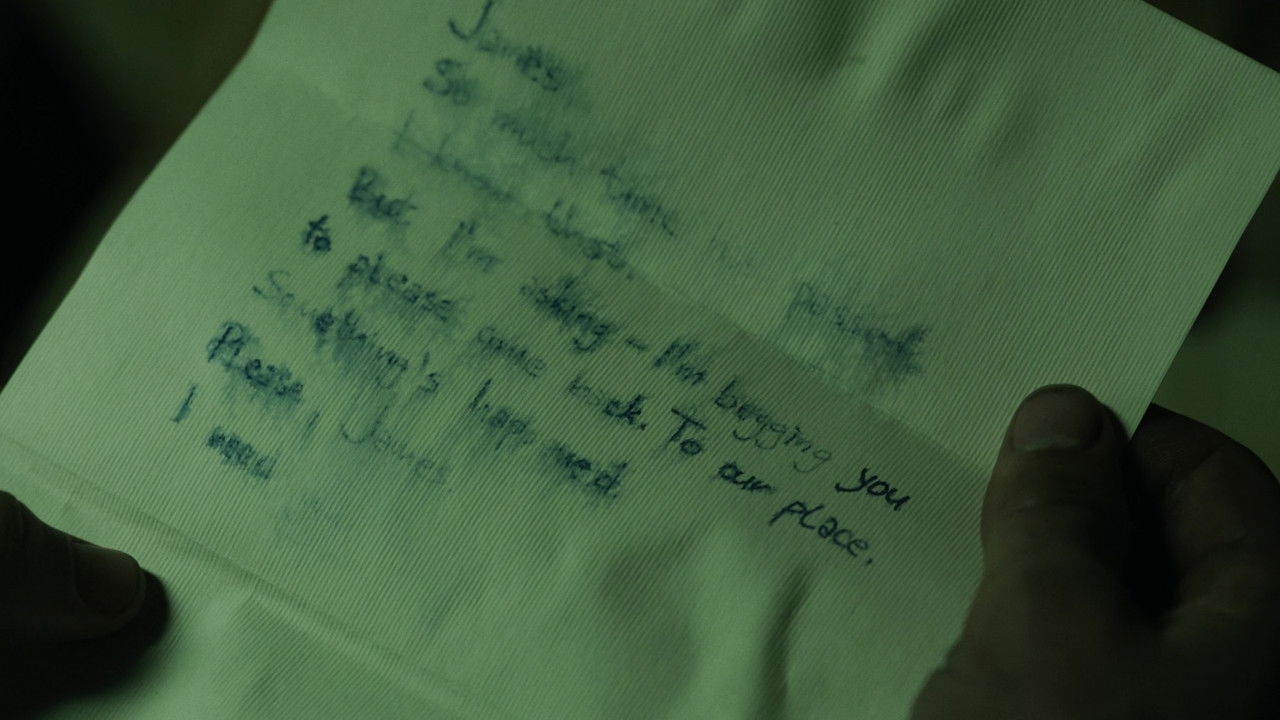 James
So much time has passed
I know that.
But I'm asking – I'm begging you
to please come back. To our place.
Something's happened.
Please, James
I need